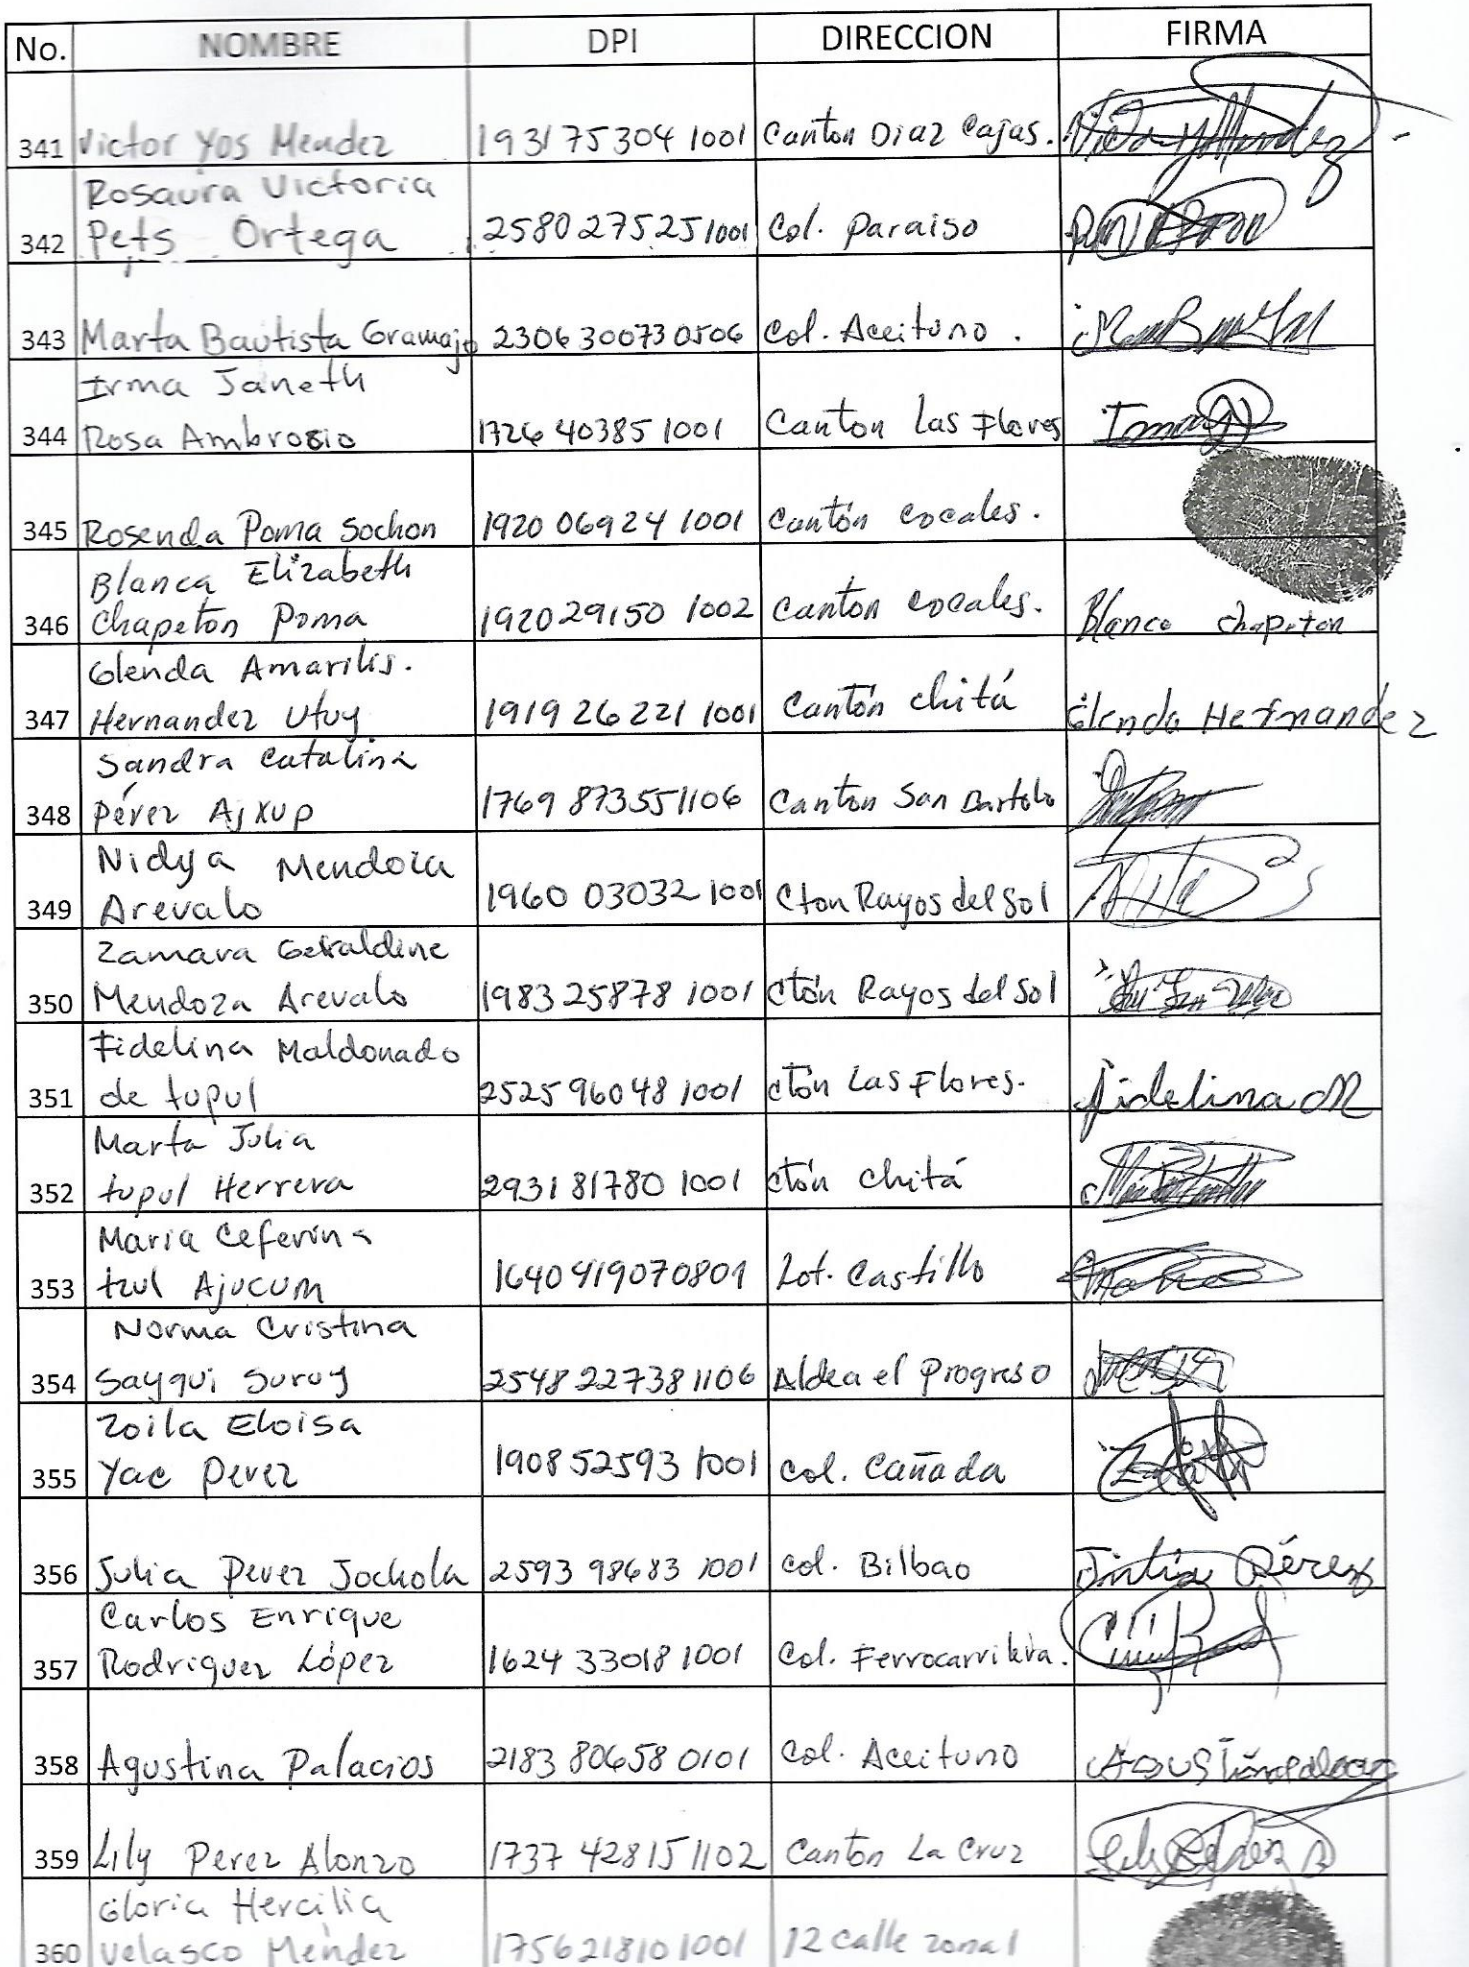 No. NOMBRE DPI DIRECCION FIRMA
341 Victor Yos Mendez 1931 75304 1001 Canton Diaz Cajas.
Rosaura Victoria
342 Pets Ortega 2580 27525 1001 Col. Paraiso
343 Marta Bautista Gramajo 2306 30073 0506 Col. Aceituno.
Irma Janeth
344 Rosa Ambrosio 1726 40385 1001 Canton Las Flores Irma
345 Rosenda Poma Sochon 1920 06924 1001 Cantón cocales.
Blanca Elizabeth
346 Chapeton Poma 1920 29150 1002 Canton cocales. Blanca chapeton
Glenda Amarilis.
347 Hernandez Utuy 1919 26221 1001 Cantón chitá Glenda Hernandez
Sandra Catalina
348 Pérez Ajxup 1769 87355 1106 Canton San Bartolo
Nidya Mendoza
349 Arevalo 1960 03032 1001 Cton Rayos del Sol
Zamara Geraldine
350 Mendoza Arevalo 1983 25878 1001 Ctón Rayos del Sol
Fidelina Maldonado
351 de tupul 2525 96048 1001 ctón Las Flores. Fidelina M
Marta Julia
352 tupul Herrera 2931 81780 1001 ctón chitá
Maria Ceferina
353 tzul Ajucum 1640 41907 0801 Lot. Castillo
Norma Cristina
354 Sayqui Suruy 2548 22738 1106 Aldea el Progreso
Zoila Eloisa
355 Yac Perez 1908 52593 1001 Col. Cañada
356 Julia Perez Jochola 2593 98683 1001 Col. Bilbao Julia Pérez
Carlos Enrique
357 Rodriguez López 1624 33018 1001 Col. Ferrocarrilera.
358 Agustina Palacios 2183 80658 0101 Col. Aceituno Agustina palacios
359 Lily Perez Alonzo 1737 42815 1102 Canton La Cruz
Gloria Hercilia
360 Velasco Méndez 1756 21810 1001 12 calle zona 1